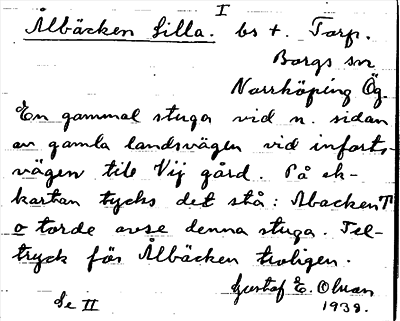 I
Ålbäcken Lilla. bs t. Torp.
Borgs sn
Norrköping Ög.
En gammal stuga vid n. sidan
av gamla landsvägen vid infarts-
vägen till Vij gård. På ek-
kartan tycks det stå: Abacken T
o torde avse denna stuga. Fel-
tryck för Ålbäcken troligen.
Gustaf E. Olson
Se II 1938.